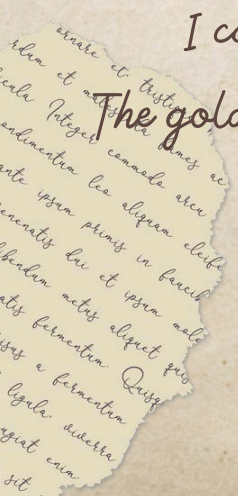 I co
The gold
ornare et tristiq
rdum et malesuada fames ac
icula. Integer commodo arcu
ondimentum leo aliquam eleife
ante ipsum primis in faucib
enenatis dui et ipsum
ibendum metus aliquet mole
atis fermentum quis
isus a fermentum Quisq
ligula viverra
ugiat enim
sit